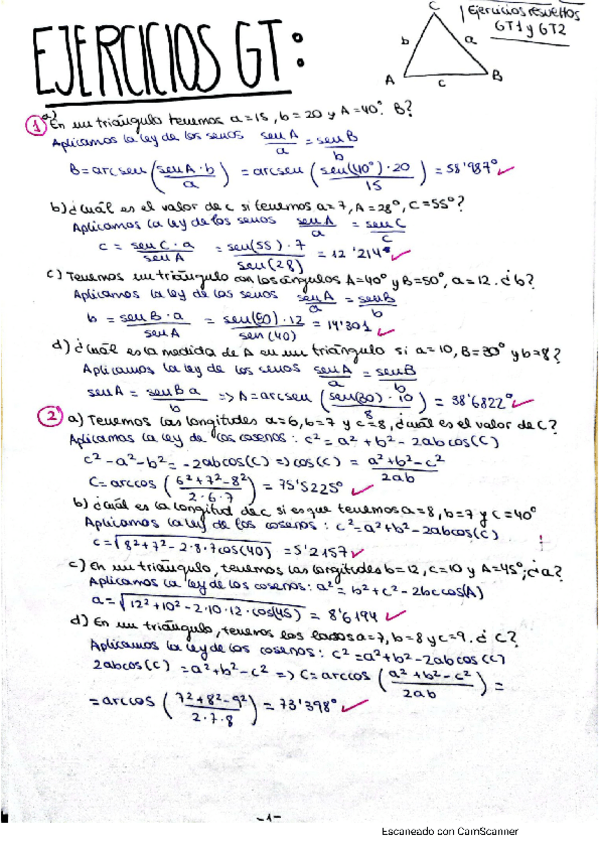 EJERCICIOS GT:
Ejercicios resueltos
GT1 y GT2
C
b a
A c B
1 a) En un triángulo tenemos a=15, b=20 y A=40°. B?
Aplicamos la ley de los senos senA/a = senB/b
B=arcsen(senA·b/a) = arcsen(sen(40°)·20/15) = 58'987° ✓
b) ¿Cuál es el valor de c si tenemos a=7, A=28°, C=55°?
Aplicamos la ley de los senos senA/a = senC/c
c = senC·a/senA = sen(55)·7/sen(28) = 12'214 ✓
c) Tenemos un triángulo con los ángulos A=40° y B=50°, a=12. ¿b?
Aplicamos la ley de los senos senA/a = senB/b
b = senB·a/senA = sen(50)·12/sen(40) = 14'301 ✓
d) ¿Cuál es la medida de A en un triángulo si a=10, B=30° y b=8?
Aplicamos la ley de los senos senA/a = senB/b
senA = senB a/b => A=arcsen(sen(30)·10/8) = 38'6822° ✓
2 a) Tenemos las longitudes a=6, b=7 y c=8, ¿cuál es el valor de C?
Aplicamos la ley de los cosenos: c²=a²+b²-2abcos(C)
c²-a²-b²=-2abcos(C) => cos(C) = a²+b²-c²/2ab
C=arccos(6²+7²-8²/2·6·7) = 75'5225° ✓
b) ¿Cuál es la longitud de c si es que tenemos a=8, b=7 y C=40°
Aplicamos la ley de los cosenos: c²=a²+b²-2abcos(C)
c=√8²+7²-2·8·7cos(40) = 5'2157 ✓
c) En un triángulo, tenemos las longitudes b=12, c=10 y A=45°, ¿a?
Aplicamos la ley de los cosenos: a²=b²+c²-2bccos(A)
a=√12²+10²-2·10·12·cos(45) = 8'6194 ✓
d) En un triángulo, tenemos los lados a=7, b=8 y c=9. ¿C?
Aplicamos la ley de los cosenos: c²=a²+b²-2abcos(C)
2abcos(C) = a²+b²-c² => C=arccos(a²+b²-c²/2ab) =
=arccos(7²+8²-9²/2·7·8) = 73'398° ✓
-1-
Escaneado con CamScanner